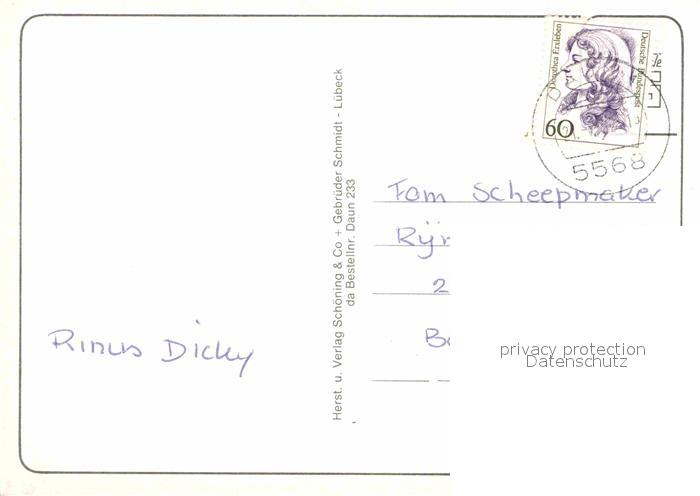 Dorothea Erxleben
Deutsche Bundespost
60
5568
Herst. u. Verlag Schöning & Co + Gebrüder Schmidt - Lübeck
da Bestellnr. Daun 233
Fam Scheepmaker
2
Rinus Dicky
privacy protection
Datenschutz